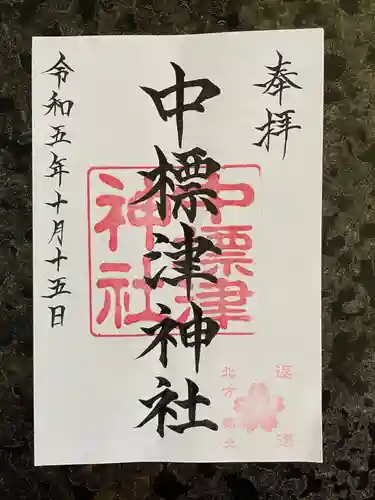 奉拝
中標津神社
令和五年十月十五日
中標津
神社
返還
北方領土